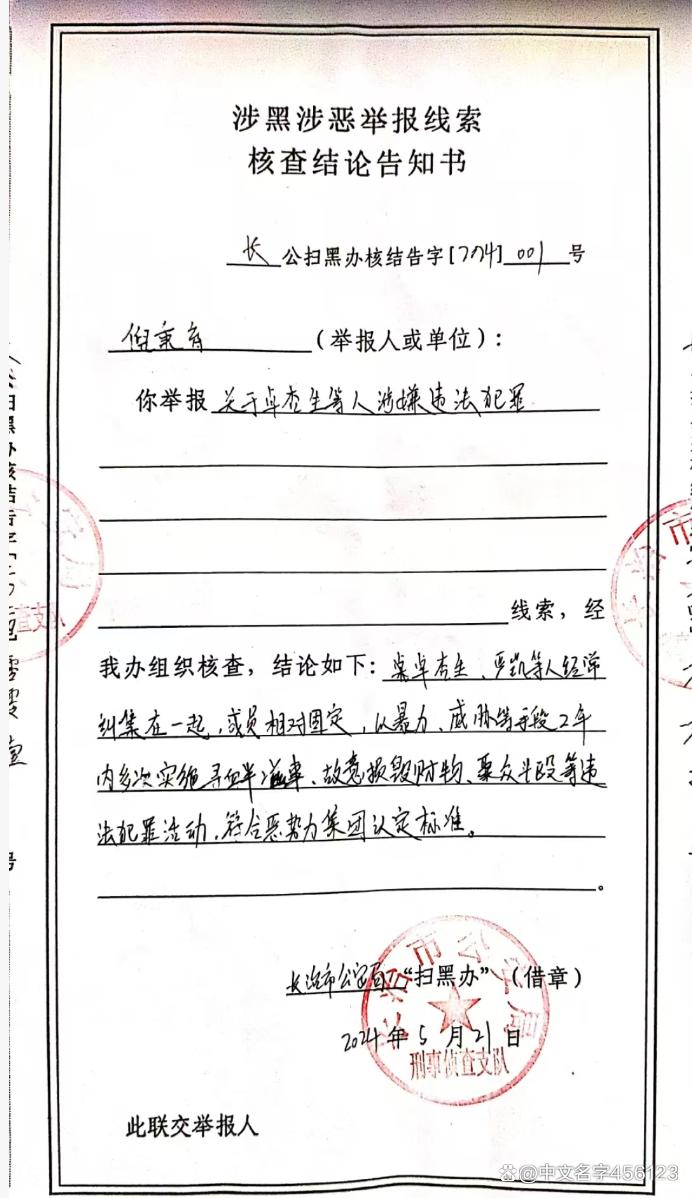 涉黑涉恶举报线索
核查结论告知书
长 公扫黑办核结告字[2024] 001 号
倪秉育 (举报人或单位):
你举报 关于卓杏生等人涉嫌违法犯罪
线索，经
我办组织核查，结论如下: 案卓杏生、严凯等人经常
纠集在一起，成员相对固定，以暴力、威胁等手段2年
内多次实施寻衅滋事、故意损毁财物、聚众斗殴等违
法犯罪活动，符合恶势力集团认定标准。
。
长治市公安局 “扫黑办” (借章)
2024 年 5 月 21 日
长治市公安局
刑事侦查支队
此联交举报人
中文名字456123